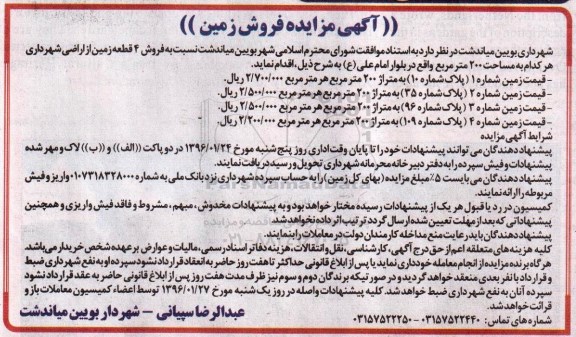 ((آگهی مزایده فروش زمین))
شهرداری بویین میاندشت در نظر دارد به استناد موافقت شورای محترم اسلامی شهر بویین میاندشت نسبت به فروش ۴ قطعه زمین از اراضی شهرداری
هر کدام به مساحت ۲۰۰ متر مربع واقع در بلوار امام علی (ع) به شرح ذیل، اقدام نماید.
- قیمت زمین شماره ۱ (پلاک شماره ۱۰) به متراژ ۲۰۰ متر مربع هر متر مربع ۲/۷۰۰/۰۰۰ ریال.
- قیمت زمین شماره ۲ (پلاک شماره ۳۵) به متراژ ۲۰۰ متر مربع هر متر مربع ۲/۵۰۰/۰۰۰ ریال.
- قیمت زمین شماره ۳ (پلاک شماره ۹۶) به متراژ ۲۰۰ متر مربع هر متر مربع ۲/۵۰۰/۰۰۰ ریال.
- قیمت زمین شماره ۴ (پلاک شماره ۱۰۹) به متراژ ۲۰۰ متر مربع هر متر مربع ۲/۲۰۰/۰۰۰ ریال.
شرایط آگهی مزایده
پیشنهاددهندگان می توانند پیشنهادات خود را تا پایان وقت اداری روز پنج شنبه مورخ ۱۳۹۶/۰۱/۲۴ در دو پاکت ((الف)) و ((ب)) لاک و مهر شده
پیشنهادات و فیش سپرده را به دفتر دبیر خانه محرمانه شهرداری تحویل و رسید دریافت نمایند.
پیشنهاددهندگان می بایست ۵٪ مبلغ مزایده (بهای کل زمین) را به حساب سپرده شهرداری نزد بانک ملی به شماره ۰۱۰۷۳۱۸۳۲۸۰۰۰ واریز و فیش
مربوطه را ارائه نمایند.
کمیسیون در رد یا قبول هر یک از پیشنهادات رسیده مختار خواهد بود و به پیشنهادات مخدوش، مبهم، مشروط و فاقد فیش واریزی و همچنین
پیشنهاداتی که بعد از مهلت تعیین شده ارسال گردد ترتیب اثر داده نخواهد شد.
پیشنهاد دهندگان باید رعایت منع مداخله کارمندان دولت در معاملات را بنمایند.
کلیه هزینه های متعلقه اعم از حق درج آگهی، کارشناسی، نقل و انتقالات، هزینه دفاتر اسناد رسمی، مالیات و عوارض بر عهده شخص خریدار می باشد.
هر گاه برنده مزایده از انجام معامله خودداری نماید یا پس از ابلاغ قانونی حداکثر تا هفت روز حاضر به انعقاد قرارداد نشود سپرده او به نفع شهرداری ضبط
و قرارداد با نفر بعدی منعقد خواهد گردید و در صورتیکه برندگان دوم و سوم نیز ظرف مدت هفت روز پس از ابلاغ قانونی حاضر به عقد قرارداد نشود
سپرده آنان به نفع شهرداری ضبط خواهد شد. کلیه پیشنهادات واصله در روز یک شنبه مورخ ۱۳۹۶/۰۱/۲۷ توسط اعضاء کمیسیون معاملات باز و
قرائت خواهد شد.
شماره های تماس: ۰۳۱۵۷۵۲۲۴۴۰ - ۰۳۱۵۷۵۲۲۲۵۰
عبدالرضا سپیانی - شهردار بویین میاندشت